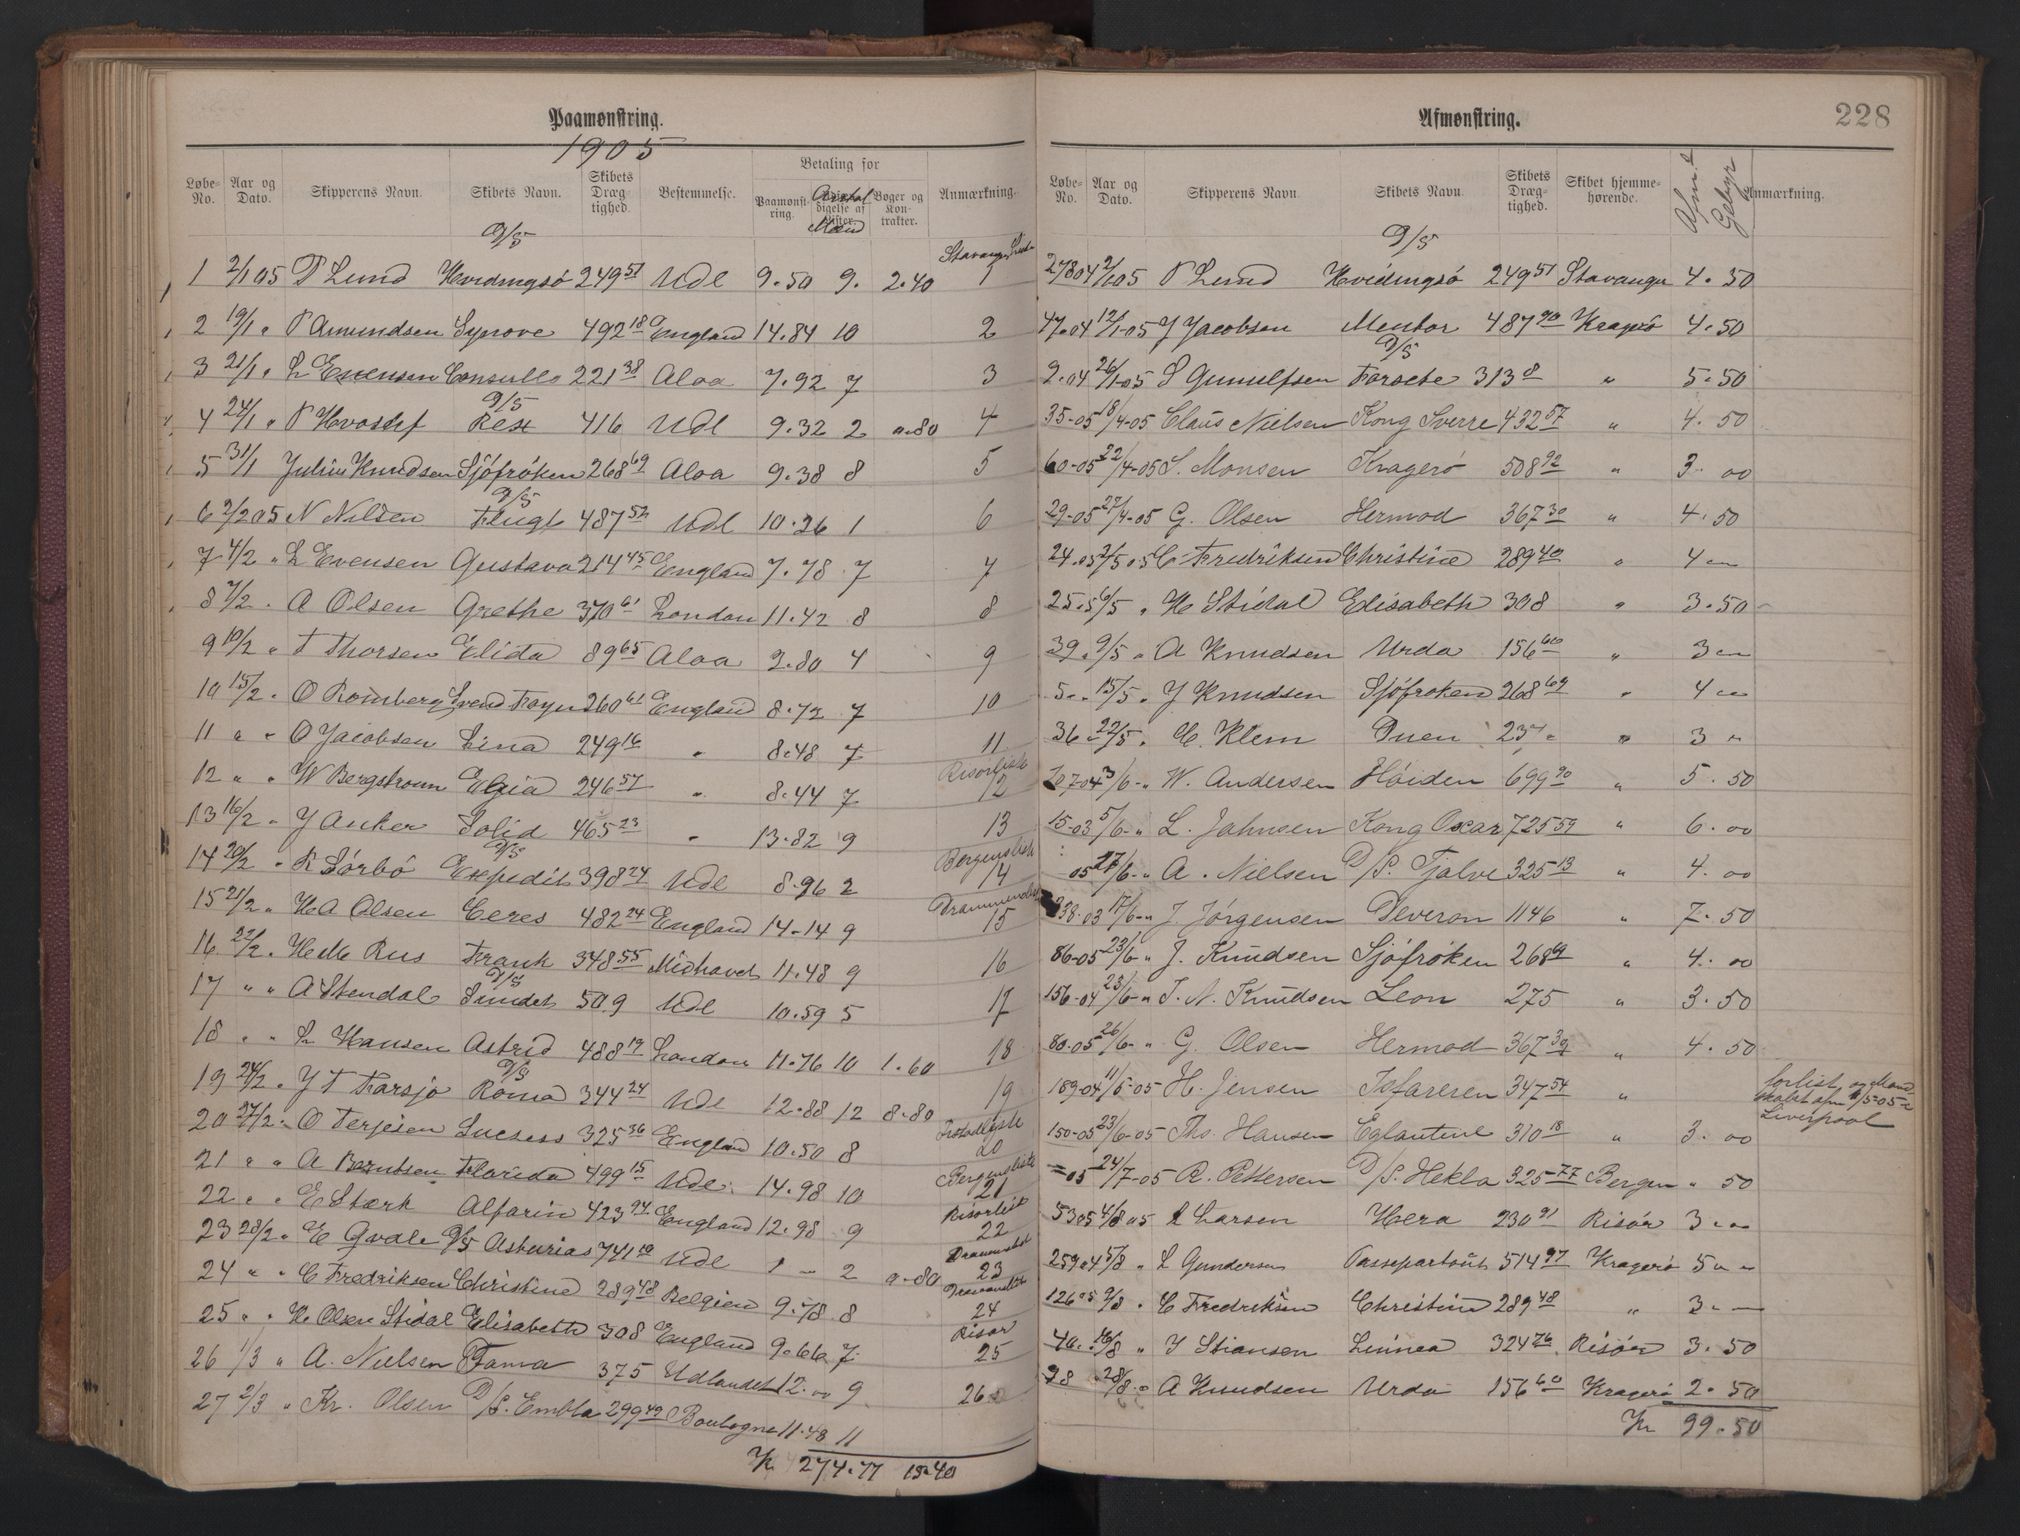 Paamønstring.
1905
Løbe-No. Aar og Dato. Skipperens Navn. Skibets Navn. Skibets Dræg-tighed. Bestemmelse. Betaling for Paamønst-ring. Antal Mand Bøger og Kon-trakter. Anmærkning.
D/S
1 2/1 05 P Lund Hvidingsø 249 51 Udl 9.50 9. 2.40 1
2 19/1 " P Amundsen Synove 492 18 England 14.84 10 2
3 21/1 " L Evensen Consullo 221 38 Aloa 7.92 7 3
D/S
4 24/1 " P Hvoslef Rex 416 Udl 9.32 2 0.80 4
5 31/1 Julius Knudsen Sjöfröken 268 69 Aloa 9.38 8 5
D/S
6 2/2 05 N Nilsen Flugt 487 52 Udl 10.26 1 6
7 4/2 " L Evensen Gustava 214 45 England 7.78 7 7
8 7/2 " A Olsen Grethe 370 61 London 11.42 8 8
9 10/2 " T Thorsen Elida 89 65 Aloa 2.80 4 9
10 15/2 " O Romberg Svend Foyn 260 61 England 8.72 7 10
11 " " O Jacobsen Lina 249 16 " 8.48 7 11
Risørliste
12 " " W Bergstrom Elgia 246 57 " 8.44 7 12
13 16/2 " J Anker Solid 465 23 " 13.82 9 13
D/S Bergensliste
14 20/2 " R Sörbö Expedit 398 24 Udl 8.96 2 14
15 21/2 " H A Olsen Ceres 482 24 England 14.14 9 15
16 22/2 " H M Rus Frank 348 55 Midhavet 11.48 9 16
D/S
17 " " A Stendal Sundet 509 Udl 10.59 5 17
18 " " L Hansen Astrid 488 19 London 11.76 10 1.60 18
D/S
19 24/2 " J T Farsjø Roma 344 24 Udl 12.88 12 8.80 19
20 27/2 " O Terjesen Sucsess 325 36 England 10.50 8 20
Bergensliste
21 " " A Berntsen Florida 499 15 Udl. 14.98 10 21
Risørliste
22 " " E Stærk Alfarin 423 94 England 12.98 9 22
23 28/2 " E Qvale D/S Asturias 741 10 Udl 1 - 2 23
24 " " C Fredriksen Christine 289 48 Belgien 9.78 8 0.80 24
Risør
25 " " H Olsen Stidal Elisabeth 308 England 9.66 7 25
26 1/3 " A. Nielsen Fama 375 Udlandet 12.00 9 26
27 2/3 " Kr. Olsen D/S. Embla 299 49 Boulogne 11.48 11
Kr. 274.77 15.40
Afmønstring.
228
Løbe-No. Aar og Dato. Skipperens Navn. Skibets Navn. Skibets Dræg-tighed. Skibet hjemme-hørende. Afm. Gebyr Anmærkning.
D/S
278 04 2/1 05 P Lund Hvidingsö 249 51 Stavanger 4.50
47.04 12/1-05 J Jacobsen Mentor 487 90 Kragerö 4.50
D/S
2.04 26/1-05 S Gunulfsen Forsete 313 8 " 5.50
35-05 18/4-05 Claus Nielsen Kong Sverre 432 57 " 4.50
60-05 22/4-05 S. Monsen Kragerö 508 92 " 3.00
29-05 27/4-05 G. Olsen Hermod 367 30 " 4.50
24.05 2/5 05 C Fredriksen Christine 289 40 " 4 "
25.5 6/5 " H Stidal Elisabeth 308 " 3.50
39. 9/5 " A Knudsen Urda 156 60 " 3 "
5 " 15/5 " J Knudsen Sjöfroken 268 69 " 4 "
36 " 22/5 " C. Klem Duen 237 " 3 "
207-04 3/6- " W. Andersen Höiden 699 90 " 5.50
15-03 5/6- " L. Johnsen Kong Oscar 725 59 " 6.00
05 17/6- " A. Nielsen D/S. Tjalve 325 13 " 4.00
238.03 17/6- " J. Jörgensen Deveron 1146 " 7.50
86-05 23/6 " J. Knudsen Sjöfröken 268 69 " 4.00
156-04 23/6- " T. N. Knudsen Leon 275 " 3.50
80-05 26/6- " G. Olsen Hermod 367 30 " 4.50
189-04 11/5-05 H. Jensen Isfareren 347 54 " forlist og Mand skabet afm 11/5-05 i Liverpool
150-05 23/6-05 Ths. Hansen Eglantine 310 18 " 3.00
05 24/7-05 R. Pettersen D/S. Hekla 325 77 Bergen " 50
53 05 4/8 05 L Larsen Hera 230 91 Risör 3 "
259.4 5/8 " L Gundersen Passepartout 514 97 Kragerö 5 "
126 05 9/8 " C Fredriksen Christine 289 48 " 3 "
46. 16/8 " J Stiansen Linnea 324 76 Risör 3.50
98 28/8 " A Knudsen Urda 156 60 Kragerö 2.50
Kr 99.50